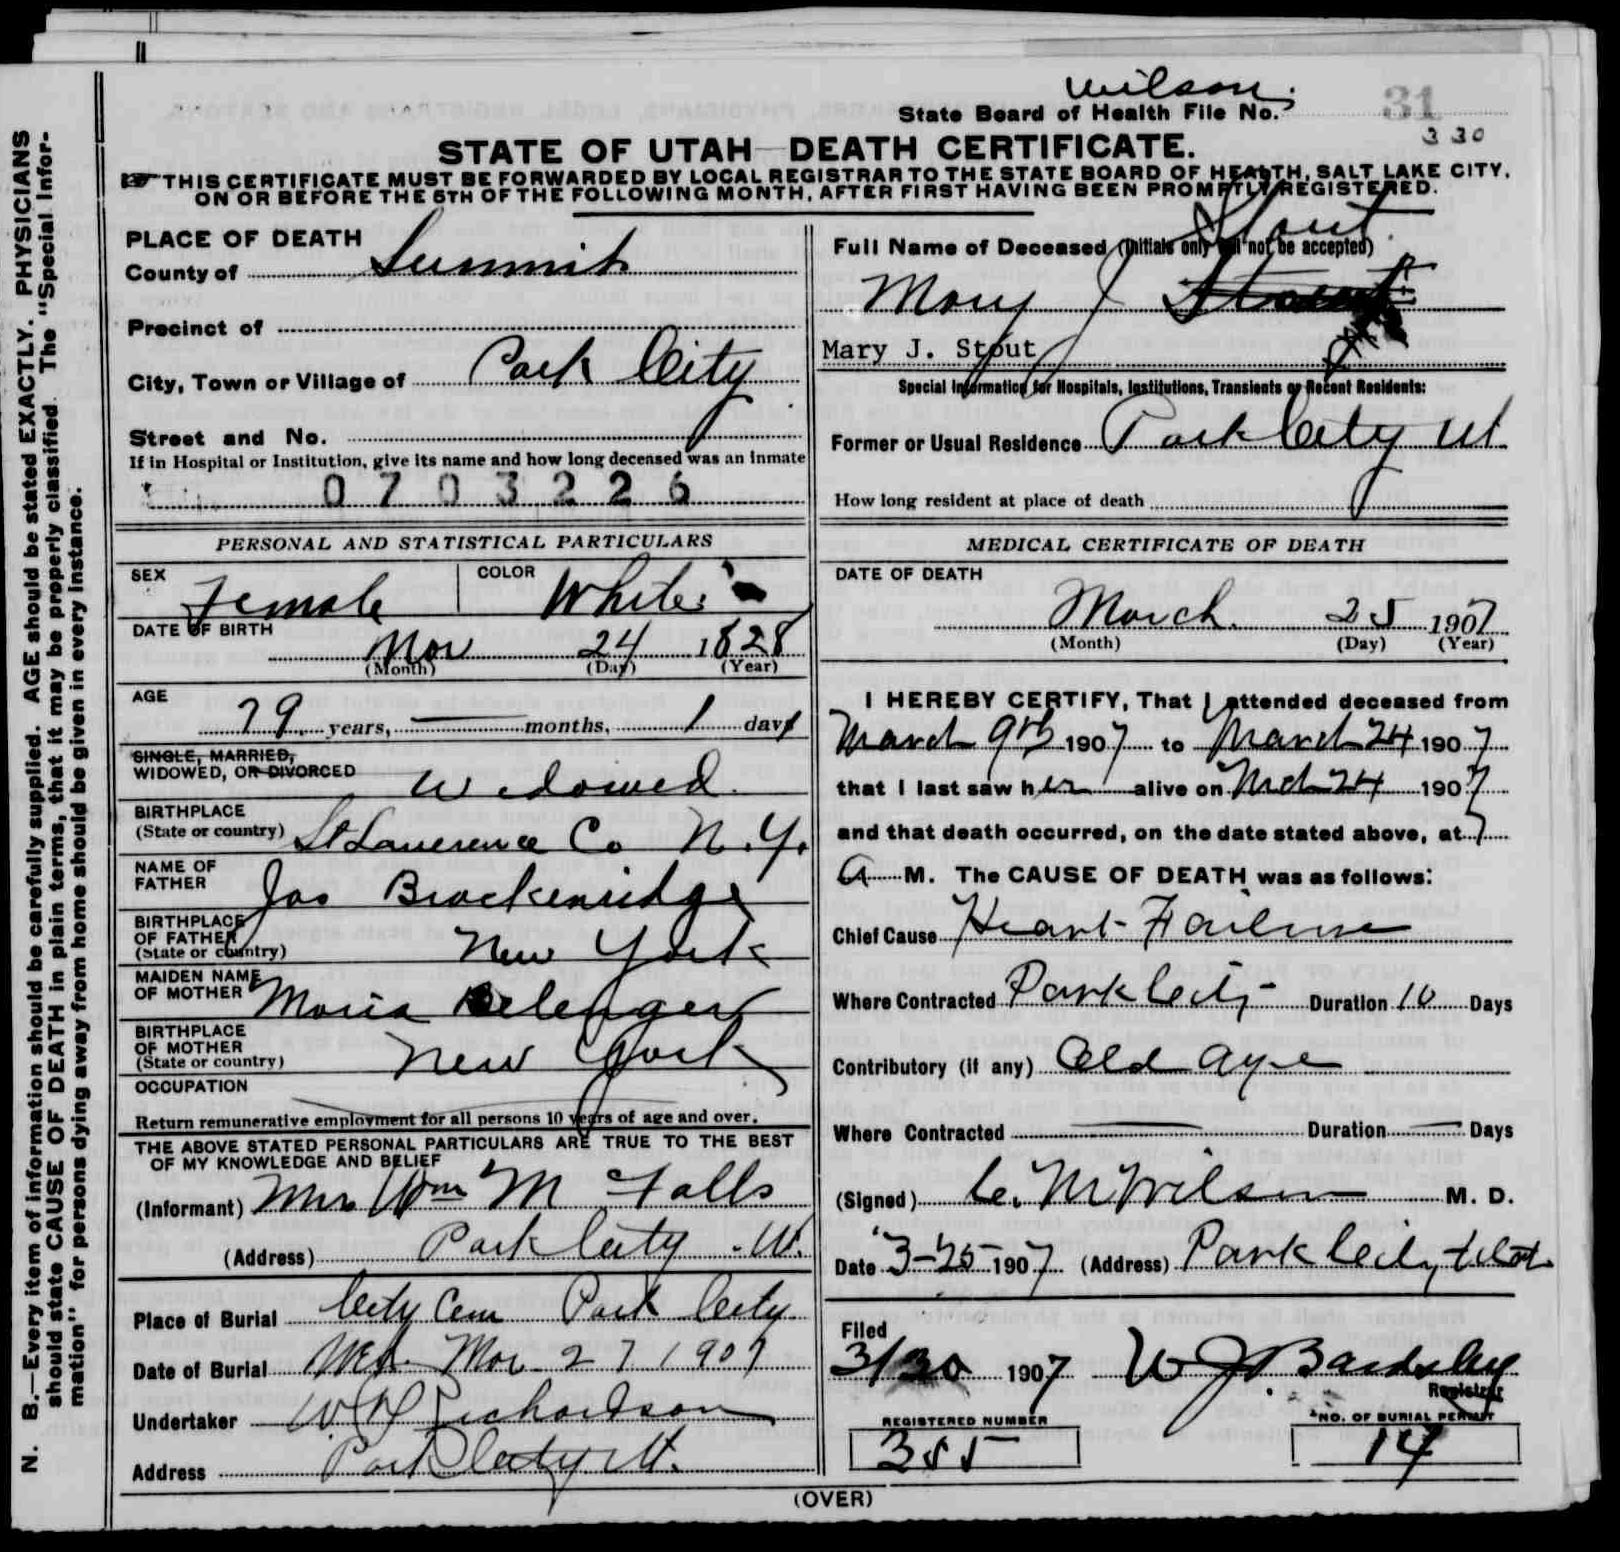 N. B.—Every item of information should be carefully supplied. AGE should be stated EXACTLY. PHYSICIANS
should state CAUSE OF DEATH in plain terms, that it may be properly classified. The "Special Infor-
mation" for persons dying away from home should be given in every instance.
Wilson
State Board of Health File No. 31
330
STATE OF UTAH—DEATH CERTIFICATE.
THIS CERTIFICATE MUST BE FORWARDED BY LOCAL REGISTRAR TO THE STATE BOARD OF HEALTH, SALT LAKE CITY,
ON OR BEFORE THE 5TH OF THE FOLLOWING MONTH, AFTER FIRST HAVING BEEN PROMPTLY REGISTERED.
PLACE OF DEATH
County of Summit
Precinct of
City, Town or Village of Park City
Street and No.
If in Hospital or Institution, give its name and how long deceased was an inmate
0703226
Stout
Full Name of Deceased (Initials only will not be accepted)
Mary J
Mary J. Stout
Special Information for Hospitals, Institutions, Transients or Recent Residents:
Former or Usual Residence Park City Ut
How long resident at place of death
PERSONAL AND STATISTICAL PARTICULARS
SEX Female COLOR White
DATE OF BIRTH
Nov 24 1828
(Month) (Day) (Year)
AGE
79 years, — months, 1 days
SINGLE, MARRIED,
WIDOWED, OR DIVORCED Widowed
BIRTHPLACE
(State or country) St Lawerence Co N.Y.
NAME OF
FATHER Jas Brackenridge
BIRTHPLACE
OF FATHER
(State or country) New York
MAIDEN NAME
OF MOTHER Maria Belenger
BIRTHPLACE
OF MOTHER
(State or country) New York
OCCUPATION
Return remunerative employment for all persons 10 years of age and over.
THE ABOVE STATED PERSONAL PARTICULARS ARE TRUE TO THE BEST
OF MY KNOWLEDGE AND BELIEF
(Informant) Mrs Wm M Falls
(Address) Park City Ut.
Place of Burial City Cem Park City
Date of Burial Wed. Mar 27 1907
Undertaker W Richardson
Address Park City Ut.
MEDICAL CERTIFICATE OF DEATH
DATE OF DEATH
March 25 1907
(Month) (Day) (Year)
I HEREBY CERTIFY, That I attended deceased from
March 9th 1907 to March 24 1907
that I last saw her alive on Mch 24 1907
and that death occurred, on the date stated above, at 7
A M. The CAUSE OF DEATH was as follows:
Chief Cause Heart Failure
Where Contracted Park City Duration 10 Days
Contributory (if any) Old Age
Where Contracted — Duration — Days
(Signed) C. M Wilson M. D.
Date 3-25 1907 (Address) Park City, Utah
Filed
3/30 1907 W J Bardsley
Registrar
REGISTERED NUMBER
355
NO. OF BURIAL PERMIT
14
(OVER)